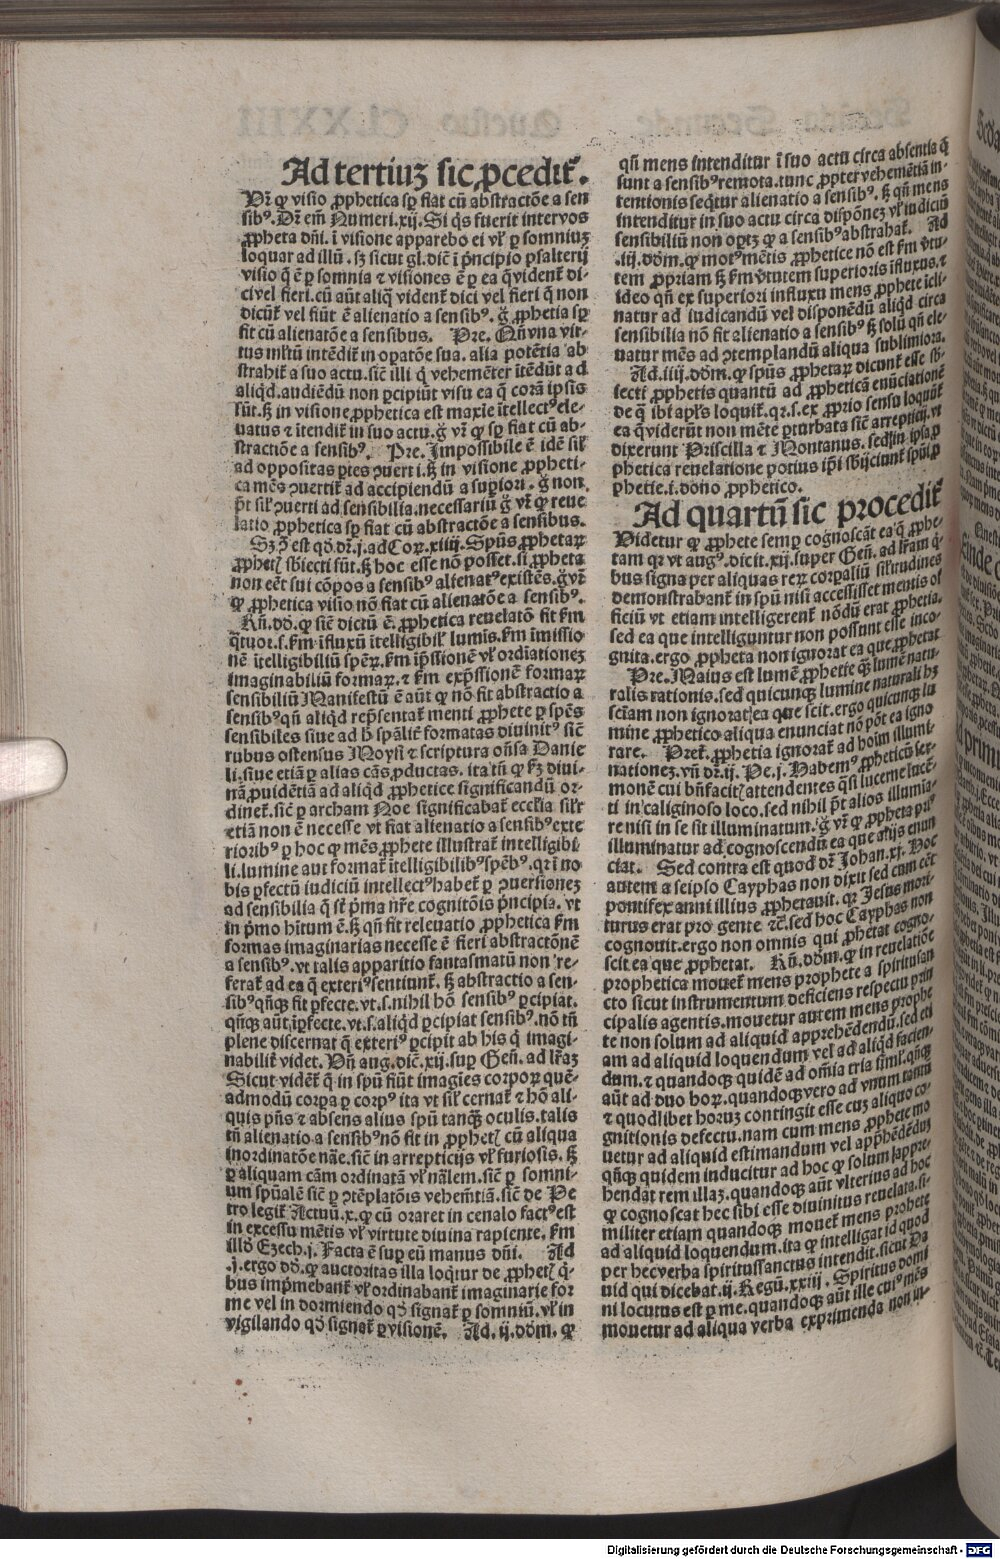 Ad tertiuʒ sic ꝓcedit᷑.
Vr̄ ꝙ visio ꝓphetica sꝑ fiat cū abstractōe a sen
sibꝰ. Dr̄ em̄ Numeri.xij. Si qͥs fuerit inter vos
ꝓpheta dn̄i. ī visione apparebo ei vl̓ ꝑ somniuʒ
loquar ad illū. sʒ sicut gl. dic̄ ī pͥncipio psalterij
visio q̄ ē ꝑ somnia ⁊ visiones ē ꝑ ea q̄ vident᷑ di-
ci vel fieri. cū aūt aliq̄ vident᷑ dici vel fieri q̄ non
dicūt᷑ vel fiūt ē alienatio a sensibꝰ. g̊ ꝓphetia sꝑ
fit cū alienatōe a sensibus. Pre. Qn̄ vna vir-
tus ml̓tū intēdit᷑ in oꝑatōe sua. alia potētia ab
strahit᷑ a suo actu. sic̄ illi q̄ vehemēter ītēdūt ad
aliqd̓. audiēdū non ꝑcipiūt visu ea q̄ corā ip̄sis
fiūt. sʒ in visione ꝓphetica est maxīe ītellectꝰ ele-
uatus ⁊ ītendit᷑ in suo actu. g̊ vr̄ ꝙ sꝑ fiat cū ab-
stractōe a sensibꝰ. Pre. Impossibile ē idē sil̓
ad oppositas ꝑtes ↄuerti. sʒ in visione ꝓpheti-
ca mēs ↄuertit᷑ ad accipiendū a suꝑiori. g̊ non
pt̄ sil̓ ↄuerti ad sensibilia. necessariū g̊ vr̄ ꝙ reue
latio ꝓphetica sꝑ fiat cū abstractōe a sensibus.
Sʒ ↄ̄ est qd̓ dr̄. j. ad Coꝝ. xiiij. Spūs ꝓphetaꝝ
ꝓphetꝭ sbiecti sūt. sʒ hoc esse nō posset. si ꝓpheta
non eēt sui cōpos a sensibꝰ alienatꝰ existēs. g̊ vr̄
ꝙ ꝓphetica visio nō fiat cū alienatōe a sensibꝰ.
Rn̄. dd̓. ꝙ sic̄ dictū ē. ꝓphetica reuelatō fit ẜm
qͣtuor. s. ẜm īfluxū ītelligibil̓ lumīs. ẜm īmissio
nē ītelligibiliū spēꝝ. ẜm īp̄ssionē vl̓ ordīationeʒ
imaginabiliū formaꝝ. ⁊ ẜm exp̄ssionē formaꝝ
sensibiliū Manifestū ē aūt ꝙ nō fit abstractio a
sensibꝰ qn̄ aliqd̓ rep̄sentat᷑ menti ꝓphete ꝑ spēs
sensibiles siue ad ħ spāl̓it᷑ formatas diuinitꝰ sic̄
rubus ostensus Moysi ⁊ scriptura on̄sa Danie
li. siue etiā ꝑ alias cās ꝓductas. ita tn̄ ꝙ ẜʒ diui-
nā ꝓuidētiā ad aliqd̓ ꝓphetice significandū or-
dinet᷑. sic̄ ꝑ archam Noe significabat᷑ eccl̓ia sil̓r
etiā non ē necesse vt fiat alienatio a sensibꝰ exte
rioribꝰ ꝑ hoc ꝙ mēs ꝓphete illustrat᷑ intelligibi
li. lumine aut format᷑ ītelligibilibꝰ spēbꝰ. qꝛ ī no
bis ꝑfectū iudiciū intellectꝰ habet᷑ ꝑ ↄuersioneʒ
ad sensibilia q̄ st̄ pͥma nr̄e cognitōis pͥncipia. vt
in pͥmo hītum ē. sʒ qn̄ fit releuatio ꝓphetica ẜm
formas imaginarias necesse ē fieri abstractōnē
a sensibꝰ. vt talis apparitio fantasmatū non re-
ferat᷑ ad ea q̄ exteriꝰ sentiunt᷑. sʒ abstractio a sen-
sibꝰ qn̄qꝫ fit ꝑfecte. vt. s. nihil hō sensibꝰ ꝑcipiat.
qn̄qꝫ aūt īꝑfecte. vt. s. aliqd̓ ꝑcipiat sensibꝰ. nō tn̄
plene discernat q̄ exteriꝰ ꝑcipit ab his q̄ imagi-
nabilit᷑ videt. Vn̄ aug. dic̄. xij. suꝑ Gen̄. ad lr̄aʒ
Sicut vidēt᷑ q̄ in spū fiūt imagīes corpoꝝ quē-
admodū corpa ꝑ corpꝰ ita vt sil̓ cernat᷑ ⁊ hō ali-
quis pn̄s ⁊ absens alius spū tanqʒ oculis. talis
tn̄ alienatio a sensibꝰ nō fit in ꝓphetꝭ cū aliqua
inordinatōe nāe. sic̄ in arrepticijs vl̓ furiosis. sʒ
ꝑ aliquam cām ordinatā vl̓ nāl̓em. sic̄ ꝑ somni-
um spūalē sic̄ ꝑ ↄtēplatōis vehemētiā. sic̄ de Pe
tro legit᷑ Actuū. x. ꝙ cū oraret in cenalo factꝰ est
in excessu mētis vl̓ virtute diuina rapiente. ẜm
illd̓ Ezech. j. Facta ē suꝑ eū manus dn̄i. Ad
.j. ergo dd̓. ꝙ auctoritas illa loqͥtur de ꝓphetꝭ qͥ-
bus impͥmebant᷑ vl̓ ordinabant᷑ imaginarie for
me vel in dormiendo qd̓ signat᷑ ꝑ somniū. vl̓ in
vigilando qd̓ signat᷑ ꝑ visionē. Ad. ij. dōm. ꝙ
qn̄ mens intenditur ī suo actu circa absentia q̄
sunt a sensibꝰ remota. tunc ꝓpter vehemētiā in-
tentionis seqͥtur alienatio a sensibꝰ. sʒ qn̄ mens
intenditur in suo actu circa dispōneʒ vl̓ iudiciū
sensibiliū non oꝑtʒ ꝙ a sensibꝰ abstrahat᷑. Ad
.iij. dōm. ꝙ motꝰ mētis ꝓphetice nō est ẜm v̓tu-
tem ꝓpriam sʒ ẜm v̓tutem superioris īfluxus. ⁊
ideo qn̄ ex superiori influxu mens ꝓphete īcli-
natur ad iudicandū vel disponēdū aliqd̓ circa
sensibilia nō fit alienatio a sensibꝰ sʒ solū qn̄ ele-
uatur mēs ad ↄtemplandū aliqua sublimiora.
Ad. iiij. dōm. ꝙ spūs ꝓphetaꝝ dicunt᷑ esse sb-
iecti ꝓphetis quantū ad ꝓpheticā enūciationē
de q̄ ibi apl̓s loquit᷑. qꝛ. s. ex ꝓprio sensu loquūt᷑
ea q̄ viderūt non mēte ꝑturbata sic̄ arrepticij. vt
dixerunt Priscilla ⁊ Montanus. sed in ip̄sa ꝓ
phetica reuelatione potius ip̄i sbijciunt᷑ spūi ꝓ
phetie. i. dono ꝓphetico.
Ad quartū sic procedit᷑
Videtur ꝙ ꝓphete semꝑ cognoscāt ea q̄ ꝓphe-
tant qꝛ vt augꝰ. dicit. xij. super Gen̄. ad lr̄am qͥ-
bus signa per aliquas reꝝ corꝑaliū sil̓itudines
demonstrabant᷑ in spū nisi accessisset mentis of
ficiū vt etiam intelligerent᷑ nōdū erat ꝓphetia.
sed ea que intelliguntur non possunt esse inco-
gnita. ergo ꝓpheta non ignorat ea que ꝓphetat
Pre. Maius est lumē ꝓphetie qʒ lumē natu-
ralis rationis. sed quicunqꝫ lumine naturali hʒ
sciam non ignorat ea que scit. ergo quicunqꝫ lu
mine ꝓphetico aliqua enunciat nō pōt ea igno
rare. Pret᷑. ꝓphetia ignorat᷑ ad hoīm illumi-
nationeʒ. vn̄ dr̄. ij. Pe. j. Habemꝰ ꝓpheticū ser-
monē cui bn̄facitꝭ attendentes qͣsi lucerne lucē-
ti in caliginoso loco. sed nihil pt̄ alios illumia-
re nisi in se sit illuminatum. g̊ vr̄ ꝙ ꝓpheta priꝰ
illuminatur ad cognoscendū ea que alijs enun
ciat. Sed contra est quod dr̄ Johan. xj. Hoc
autem a seipso Cayphas non dixit sed cum eēt
pontifex anni illius ꝓphetauit. qꝛ Jesus mori-
turus erat pro gente ⁊c̄. sed hoc Cayphas non
cognouit. ergo non omnis qui ꝓphetat cogno-
scit ea que ꝓphetat. Rn̄. dōm. ꝙ in reuelatiōe
prophetica mouet᷑ mens prophete a spiritusan
cto sicut instrumentum deficiens respectu prin
cipalis agentis. mouetur autem mens prophe
te non solum ad aliquid apprehēdendū. sed eti
am ad aliquid loquendum vel ad aliqd̓ facien-
dum. ⁊ quandoqꝫ quidē ad om̄ia tria siml̓. qn̄qꝫ
aūt ad duo hoꝝ. quandoqꝫ vero ad vnum tantū
⁊ quodlibet horuʒ contingit esse cuʒ aliquo co-
gnitionis defectu. nam cum mens ꝓphete mo
uetur ad aliquid estimandum vel app̄hēdēdū
qn̄qꝫ quidem inducitur ad hoc ꝙ solum appre-
hendat rem illaʒ. quandoqꝫ aūt vlterius ad hoc
ꝙ cognoscat hec sibi esse diuinitus reuelata. si-
militer etiam quandoqꝫ mouet᷑ mens prophete
ad aliquid loquendum. ita ꝙ intelligat id quod
per hec verba spiritussanctus intendit. sicut Da
uid qui dicebat. ij. Regū. xxiij. Spiritus domi
ni locutus est ꝑ me. quandoqꝫ aūt ille cuiꝰ mēs
mouetur ad aliqua verba exprimenda non in-
Digitalisierung gefördert durch die Deutsche Forschungsgemeinschaft - DFG